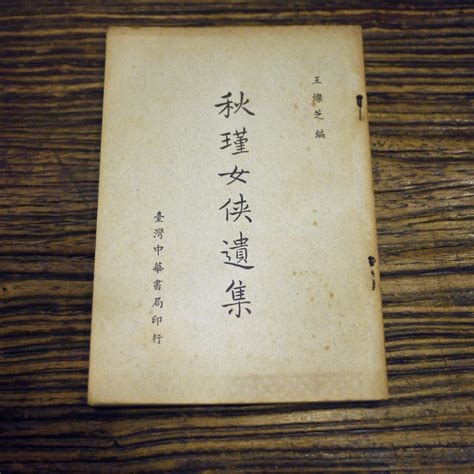 王燦芝編
秋瑾女俠遺集
臺灣中華書局印行